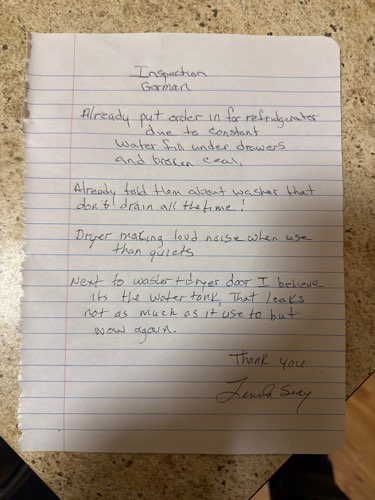 Inspection
Gorman
Already put order in for refridgerator
due to constant
water fill under drawers
and broken ceal.
Already told them about washer that
don't drain all the time!
Dryer making loud noise when use
than quiets
Next to washer + dryer door I believe
its the water tank, That leaks
not as much as it use to but
now again.
Thank you